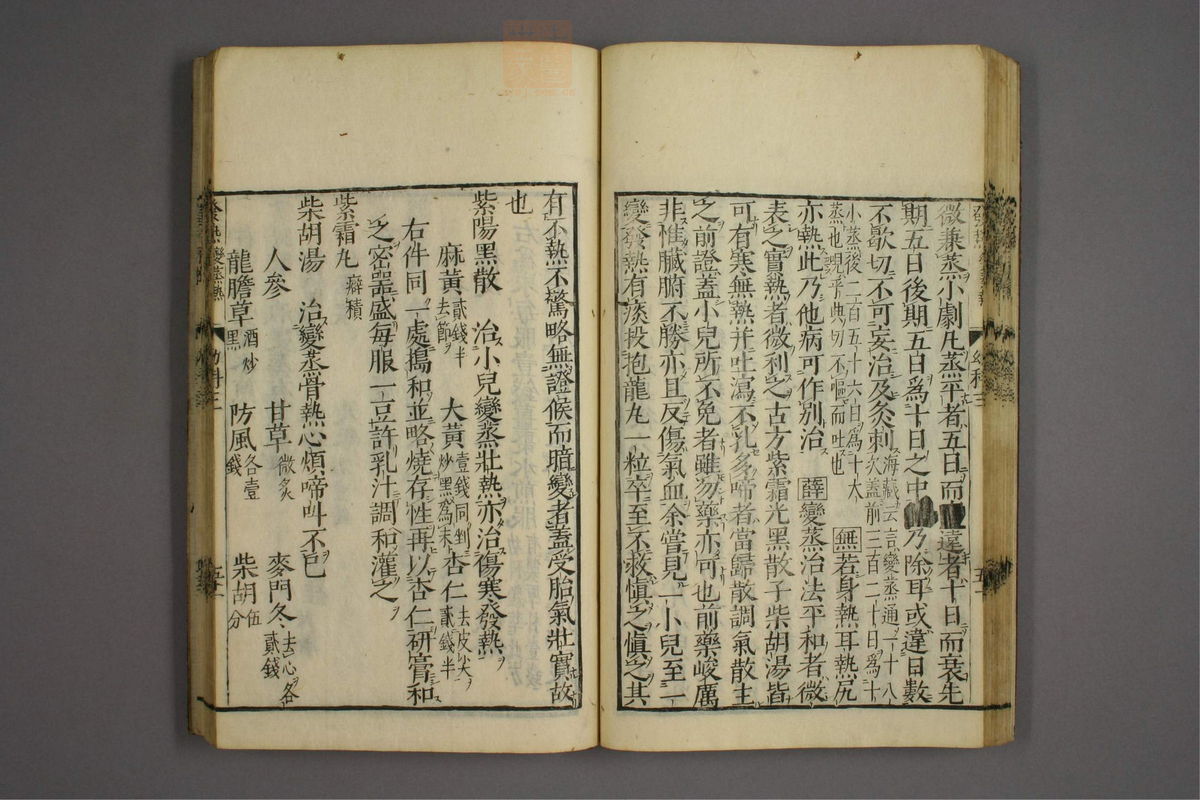 微兼蒸小劇凡蒸平者五日而衰遠者十日而衰先
期五日後期五日爲十日之中乃除耳或違日數
不歇切不可妄治及灸刺海藏云言變蒸通一十八
小蒸後二百五十六日爲十大
蒸也現平典切不嘔而吐也
無若身熱耳熱尻
亦熱此乃他病可作別治 薛變蒸治法平和者微
表之實熱者微利之古方紫霜丸黑散子柴胡湯皆
可有寒無熱并吐瀉不乳多啼者當歸散調氣散主
之前證蓋小兒所不免者雖勿藥亦可也前藥峻厲
非惟臟腑不勝亦且反傷氣血余嘗見一小兒至一
變發熱有痰投抱龍丸一粒卒至不救慎之慎之其
有不熱不驚略無證候而暗變者蓋受胎氣壯實故
也
紫陽黑散 治小兒變蒸壯熱亦治傷寒發熱
麻黃貳錢半去節 大黃壹錢同剉炒黑爲末 杏仁去皮尖貳錢半
右件同一處搗和並略燒存性再以杏仁研膏和
之密器盛每服一豆許乳汁調和灌之
紫霜丸 癖積
柴胡湯 治變蒸骨熱心煩啼叫不已
人參 甘草微炙 麥門冬去心各貳錢
龍膽草酒炒黑 防風各壹錢 柴胡伍分